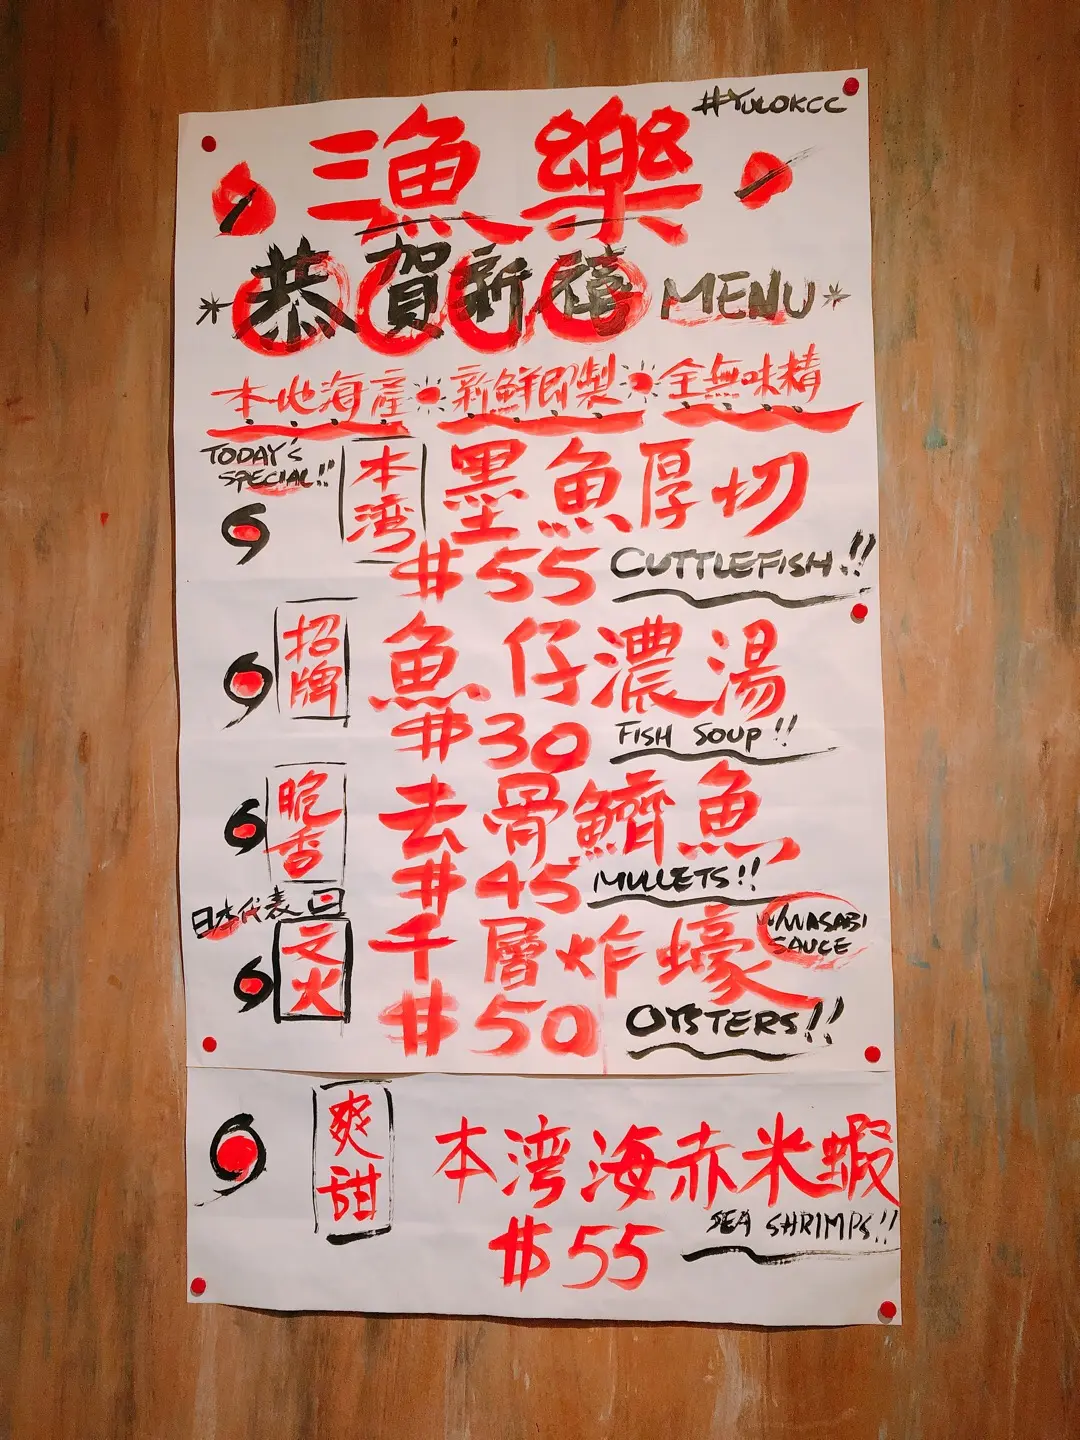 #YULOKCC
漁樂
*恭賀新禧 MENU*
本地海產 新鮮即製 全無味精
TODAY'S SPECIAL!!
本湾 墨魚厚切
$55 CUTTLEFISH!!
招牌 魚仔濃湯
$30 FISH SOUP!!
脆香 去骨鱭魚
$45 MULLETS!!
日本代表
千層炸蠔 W/WASABI SAUCE
$50 OYSTERS!!
爽甜 本湾海赤米蝦
$55 SEA SHRIMPS!!